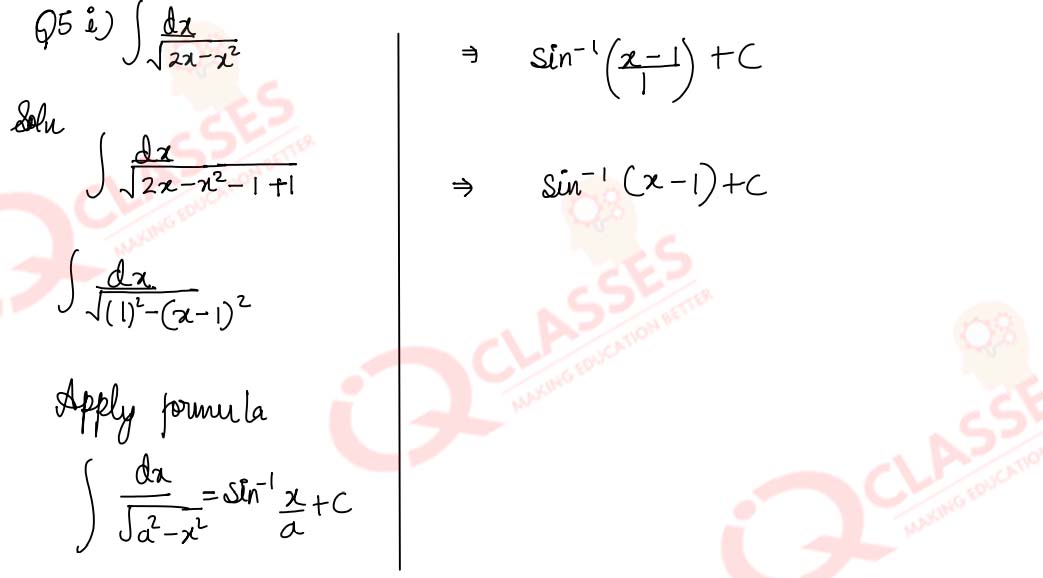 Q5 i) ∫ dx/√(2x-x²)
Soln
∫ dx/√(2x-x²-1+1)
∫ dx/√((1)²-(x-1)²)
Apply formula
∫ dx/√(a²-x²) = sin⁻¹ x/a + C
⇒ sin⁻¹((x-1)/1) + C
⇒ sin⁻¹ (x-1)+C
iQ CLASSES
MAKING EDUCATION BETTER
iQ CLASSES
MAKING EDUCATION BETTER
iQ CLASSES
MAKING EDUCATION